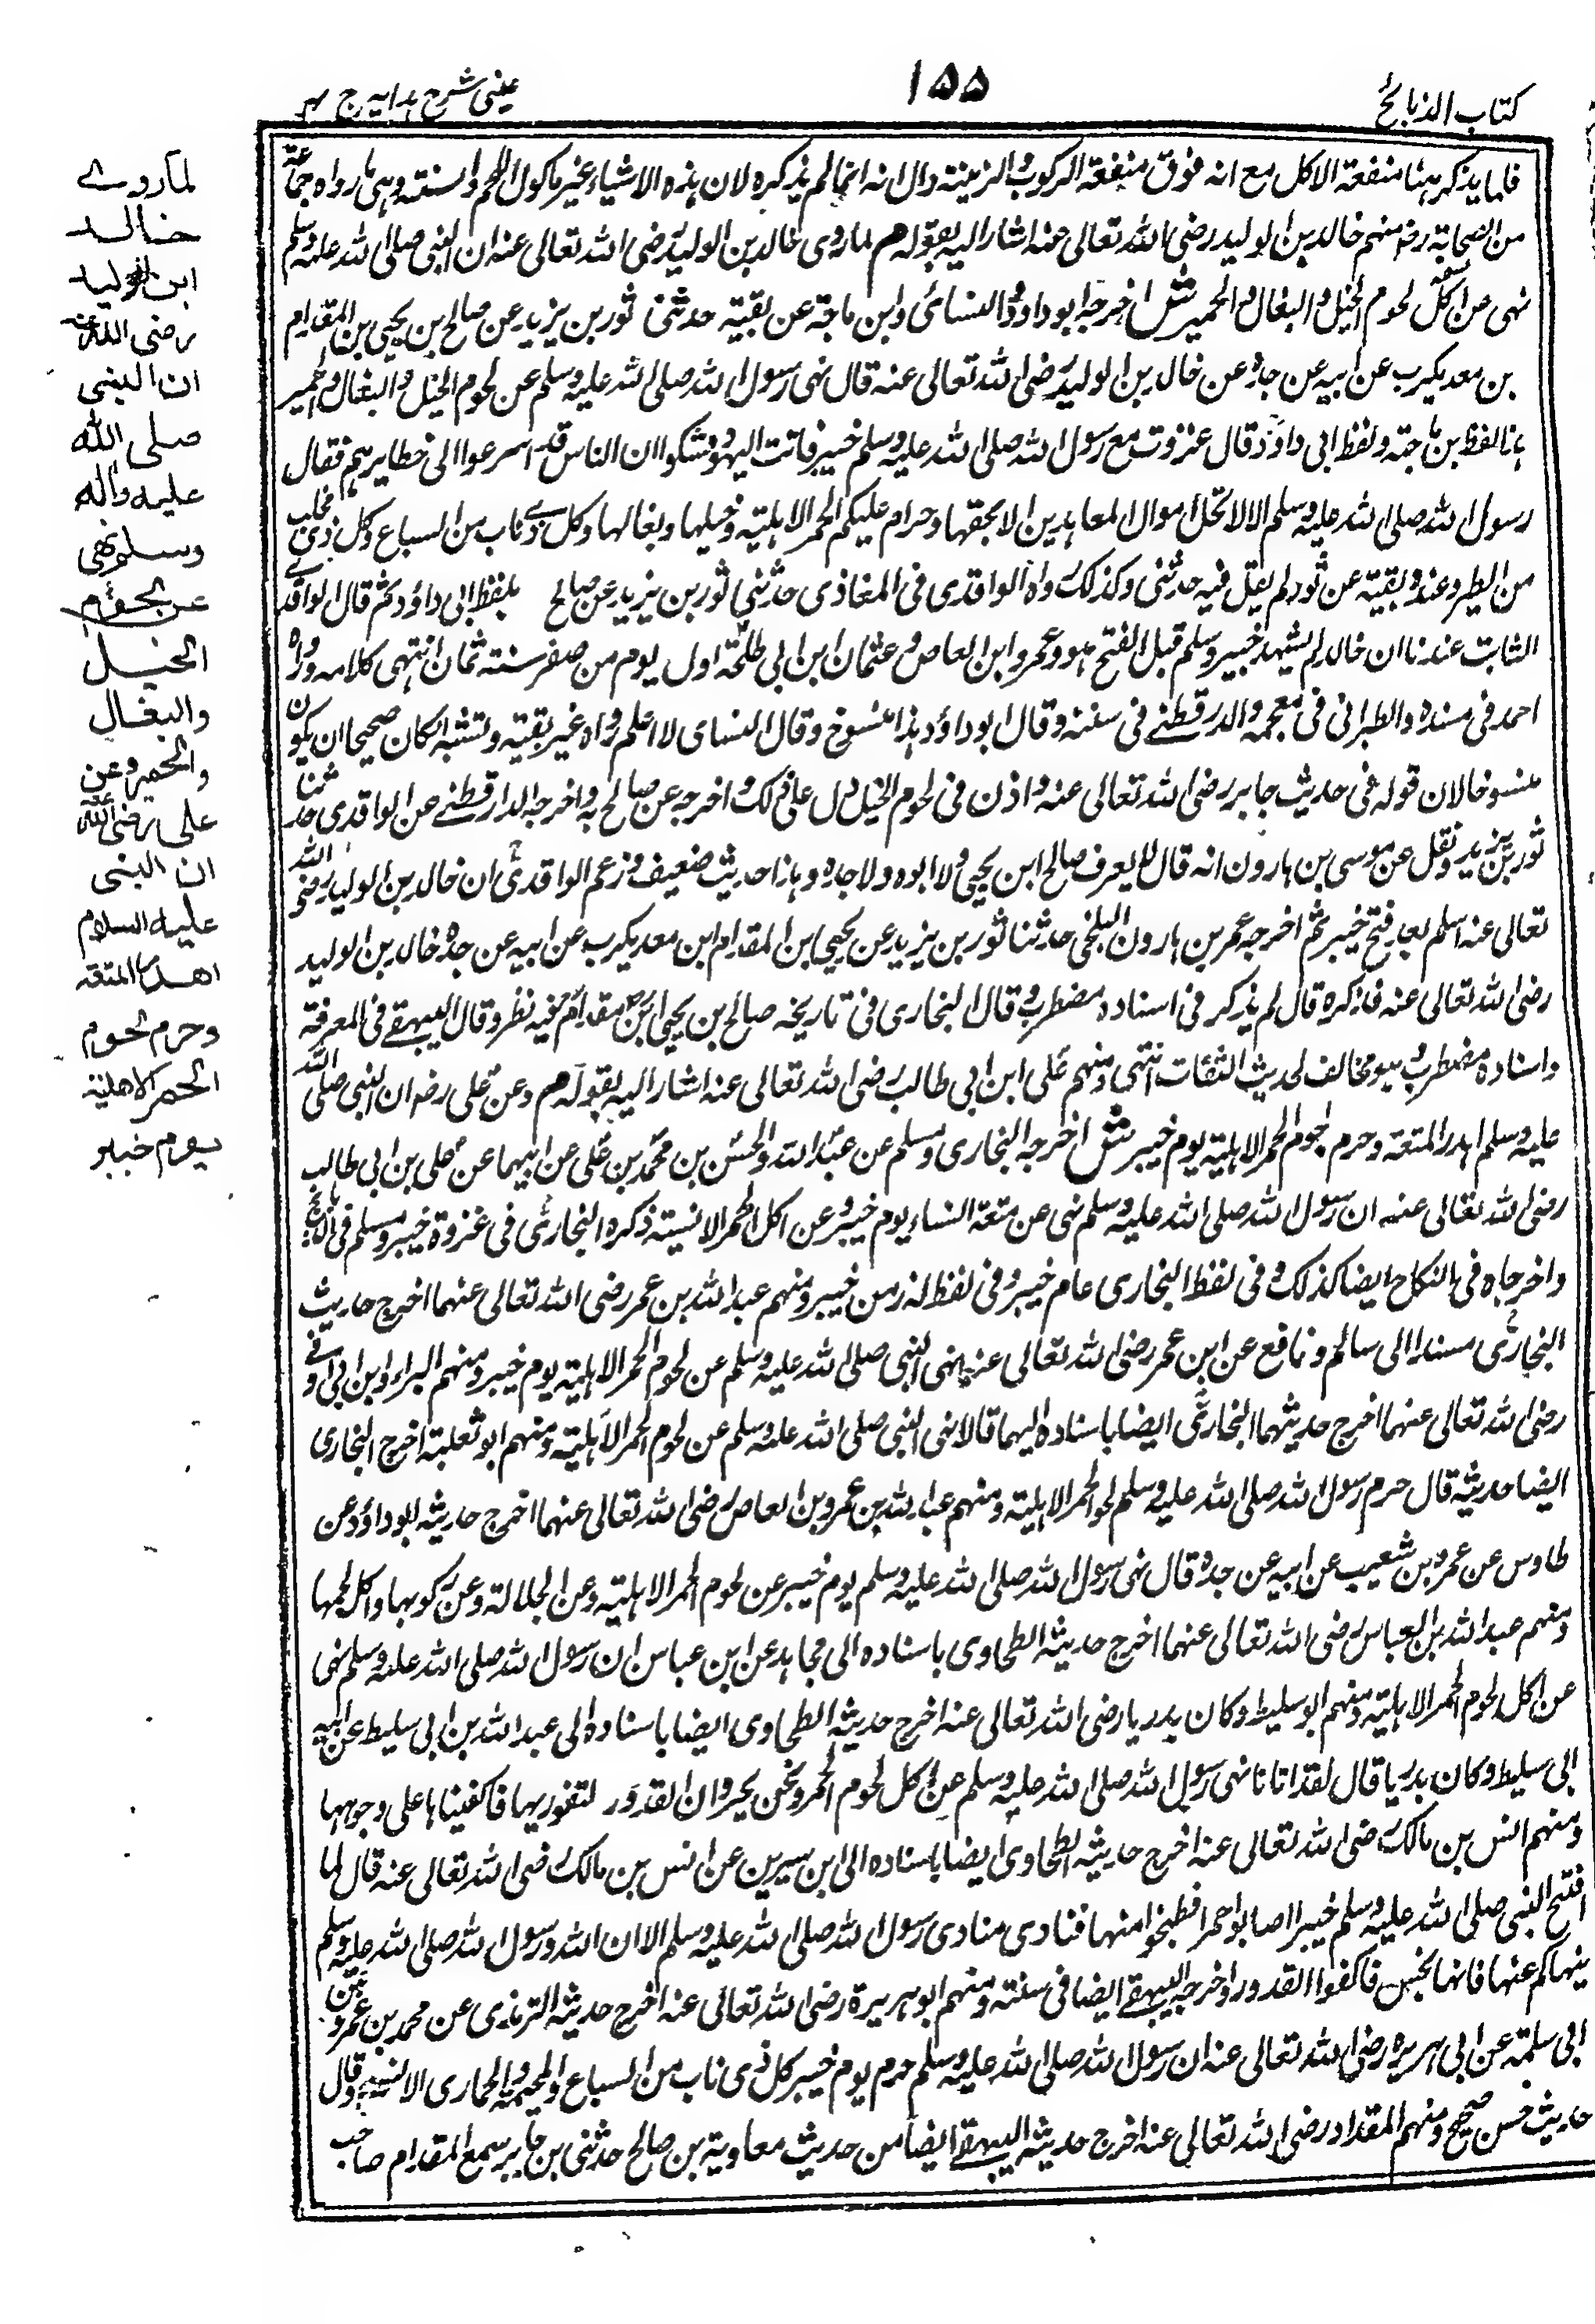 كتاب الذبائح
١٥٥
عينى شرح هدايه ج ٤
فلما يذكر ههنا منفعة الاكل مع انه فوق منفعة الركوب والزينة دال انه انما لم يذكره لان هذه الاشياء غير ماكول اللحم والسنته وهى ما رواه جماعة
من الصحابة رضه منهم خالد بن الوليد رضى الله تعالى عنه اشار اليه بقوله هم لما روى خالد بن الوليد رضى الله تعالى عنه ان النبى صلى الله عليه وسلم
نهى عن اكل لحوم الخيل والبغال والحمير ش اخرجه ابو داؤد والنسائى وابن ماجة عن بقية حدثنى ثور بن يزيد عن صالح بن يحيى بن المقدام
بن معد يكرب عن ابيه عن جده عن خالد بن الوليد رضى الله تعالى عنه قال نهى رسول الله صلى الله عليه وسلم عن لحوم الخيل والبغال والحمير
هذا لفظ بن ماجة ولفظ ابى داؤد قال غزوت مع رسول الله صلى الله عليه وسلم خيبر فاتت اليهود فشكوا ان الناس قد اسرعوا الى خطايرهم فقال
رسول الله صلى الله عليه وسلم الا لا تحل اموال المعاهدين الا بحقها وحرام عليكم الحمر الاهلية وخيلها وبغالها وكل ذى ناب من السباع وكل ذى مخلب
من الطير وعنده بقية عن ثور لم يقل فيه حدثنى وكذلك رواه الواقدى فى المغاذى حدثنى ثور بن يزيد عن صالح بلفظ ابى داؤد ثم قال الواقدى
الثابت عندنا ان خالد لم يشهد خيبر وسلم قبل الفتح هو وعمرو ابن العاص وعثمان ابن ابى طلحة اول يوم من صفر سنة ثمان انتهى كلامه ورواه
احمد فى مسنده والطبرانى فى معجمه والدرقطنے فى سننه وقال ابو داؤد هذا منسوخ وقال النساى لا اعلم رواه غير بقية وتشبه انكان صحيحا ان يكون
منسوخا لان قوله فى حديث جابر رضى الله تعالى عنه واذن فى لحوم الخيل دل على ذلك واخرجه عن صالح به واخرجه الدارقطنے عن الواقدى حدثنا
ثور بن يزيد ونقل عن موسى بن هارون انه قال لا يعرف صالح ابن يحيى ولا ابوه ولا جده وهذا حديث ضعيف وزعم الواقدى ان خالد بن الوليد رضى الله
تعالى عنه اسلم بعد فتح خيبر ثم اخرجه عمر بن هارون البلخى حدثنا ثور بن يزيد عن يحيى ابن المقدام ابن معد يكرب عن ابيه عن جده خالد بن الوليد
رضى الله تعالى عنه فذكره قال لم يذكر فى اسناده مضطرب وقال البخارى فى تاريخه صالح بن يحيى ابن مقدام فيه نظر وقال البيهقے فى المعرفة
واسناده مضطرب هو مخالف لحديث الثقات انتهى ومنهم على ابن ابى طالب رضى الله تعالى عنه اشار اليه بقوله هم وعن على رضه ان النبى صلى الله
عليه وسلم اهدر المتعة وحرم لحوم الحمر الاهلية يوم خيبر ش اخرجه البخارى ومسلم عن عبد الله والحسن بن محمد بن على عن ابيهما عن على بن ابى طالب
رضى الله تعالى عنه ان رسول الله صلى الله عليه وسلم نهى عن متعة النساء يوم خيبر وعن اكل الحمر الانسية ذكره البخارى فى غزوة خيبر ومسلم فى الذبائح
واخرجاه فى النكاح ايضا كذلك وفى لفظ البخارى عام خيبر وفى لفظ له زمن خيبر ومنهم عبد الله بن عمر رضى الله تعالى عنهما اخرج حديث
البخارى مسندا الى سالم ونافع عن ابن عمر رضى الله تعالى عنه نهى النبى صلى الله عليه وسلم عن لحوم الحمر الاهلية يوم خيبر ومنهم البراء وابن ابى اوفى
رضى الله تعالى عنهما اخرج حديثهما البخارى ايضا باسناده اليهما قالا نهى النبى صلى الله عليه وسلم عن لحوم الحمر الاهلية ومنهم ابو ثعلبة اخرج البخارى
ايضا حديثه قال حرم رسول الله صلى الله عليه وسلم لحوم الحمر الاهلية ومنهم عبد الله بن عمرو بن العاص رضى الله تعالى عنهما اخرج حديثه ابو داؤد عن
طاوس عن عمرو بن شعيب عن ابيه عن جده قال نهى رسول الله صلى الله عليه وسلم يوم خيبر عن لحوم الحمر الاهلية وعن الجلالة وعن ركوبها واكل لحمها
ومنهم عبد الله بن العباس رضى الله تعالى عنهما اخرج حديثه الطحاوى باسناده الى مجاهد عن ابن عباس ان رسول الله صلى الله عليه وسلم نهى
عن اكل لحوم الحمر الاهلية ومنهم ابو سليط وكان بدريا رضى الله تعالى عنه اخرج حديثه الطحاوى ايضا باسناده الى عبد الله بن ابى سليط عن ابيه
ابى سليط وكان بدريا قال لقد اتانا نهى رسول الله صلى الله عليه وسلم عن اكل لحوم الحمر ونحن بخيبر وان القدور لتفور بها فاكفيناها على وجوهها
ومنهم انس بن مالك رضى الله تعالى عنه اخرج حديثه الطحاوى ايضا باسناده الى ابن سيرين عن انس بن مالك رضى الله تعالى عنه قال لما
افتتح النبى صلى الله عليه وسلم خيبر اصابوا حمرا فطبخوا منها فنادى منادى رسول الله صلى الله عليه وسلم الا ان الله ورسول الله صلى الله عليه وسلم
ينهاكم عنها فانها نجس فاكفوا القدور واخرجه البيهقے ايضا فى سننه ومنهم ابو هريرة رضى الله تعالى عنه اخرج حديثه الترمذى عن محمد بن عمرو بن
ابى سلمة عن ابى هريره رضى الله تعالى عنه ان رسول الله صلى الله عليه وسلم حرم يوم خيبر كل ذى ناب من السباع والمجثمة والحمارى الانسية وقال
حديث حسن صحيح ومنهم المقداد رضى الله تعالى عنه اخرج حديثه البيهقے ايضا من حديث معاوية بن صالح حدثنى بن جابر سمع المقدام صاحب
لما روے
خالد
ابن الوليد
رضى الله عنه
ان النبى
صلى الله
عليه واله
وسلم نهى
عن لحوم
الخيل
والبغال
والحمير وعن
على رضى الله عنه
ان النبى
عليه السلام
اهدر المتعة
وحرم لحوم
الحمر الاهلية
يوم خيبر